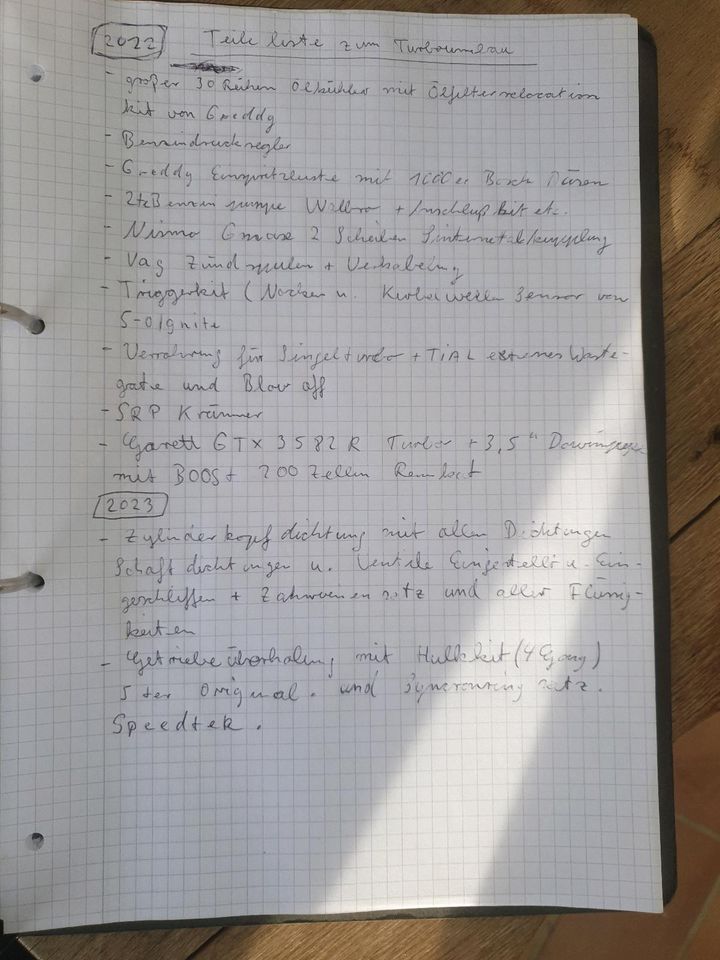 2022 Teile liste zum Turboumbau
- großer 30 Reihen Ölkühler mit Ölfilterrelocation
kit von Greddy
- Benzindruckregler
- Greddy Einspritzleiste mit 1000er Bosch Düsen
- 2te Benzinpumpe Walbro + Anschlußkit etc.
- Nismo Gmax 2 Scheiben Sintermetalkupplung
- Vag Zündspulen + Verkabelung
- Triggerkit (Nocken u. Kurbelwellen Sensor von
S-Oignite
- Verrohrung für Singelturbo + TiAL externes Waste-
gate und Blow off
- SRP Krümmer
- Garett GTX 3582 R Turbo + 3,5"
mit BOOS + 200 Zellen Rennkat
2023
- Zylinderkopfdichtung mit allen Dichtungen
Schaftdichtungen u. Ventile Eingestellt u. Ein-
geschliffen + Zahnriemensatz und aller Flüssig-
keiten
- Getriebeüberholung mit Hulkkit (4 Gang)
5ter Original. und satz.
Speedtek.